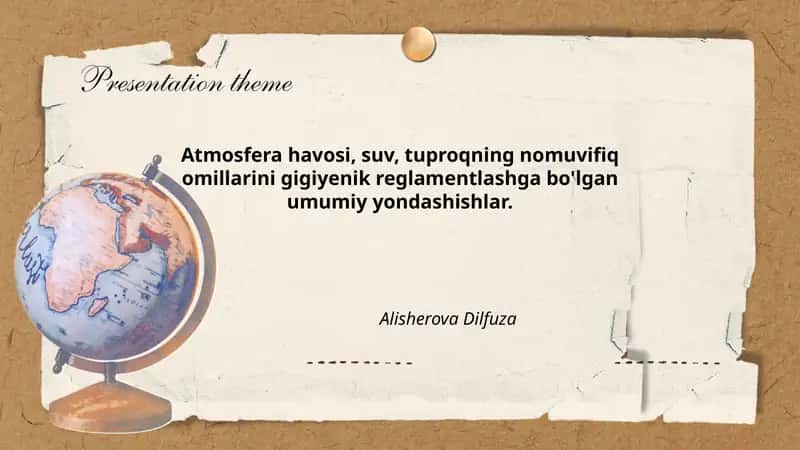 Presentation theme
Atmosfera havosi, suv, tuproqning nomuvifiq
omillarini gigiyenik reglamentlashga bo'lgan
umumiy yondashishlar.
Alisherova Dilfuza